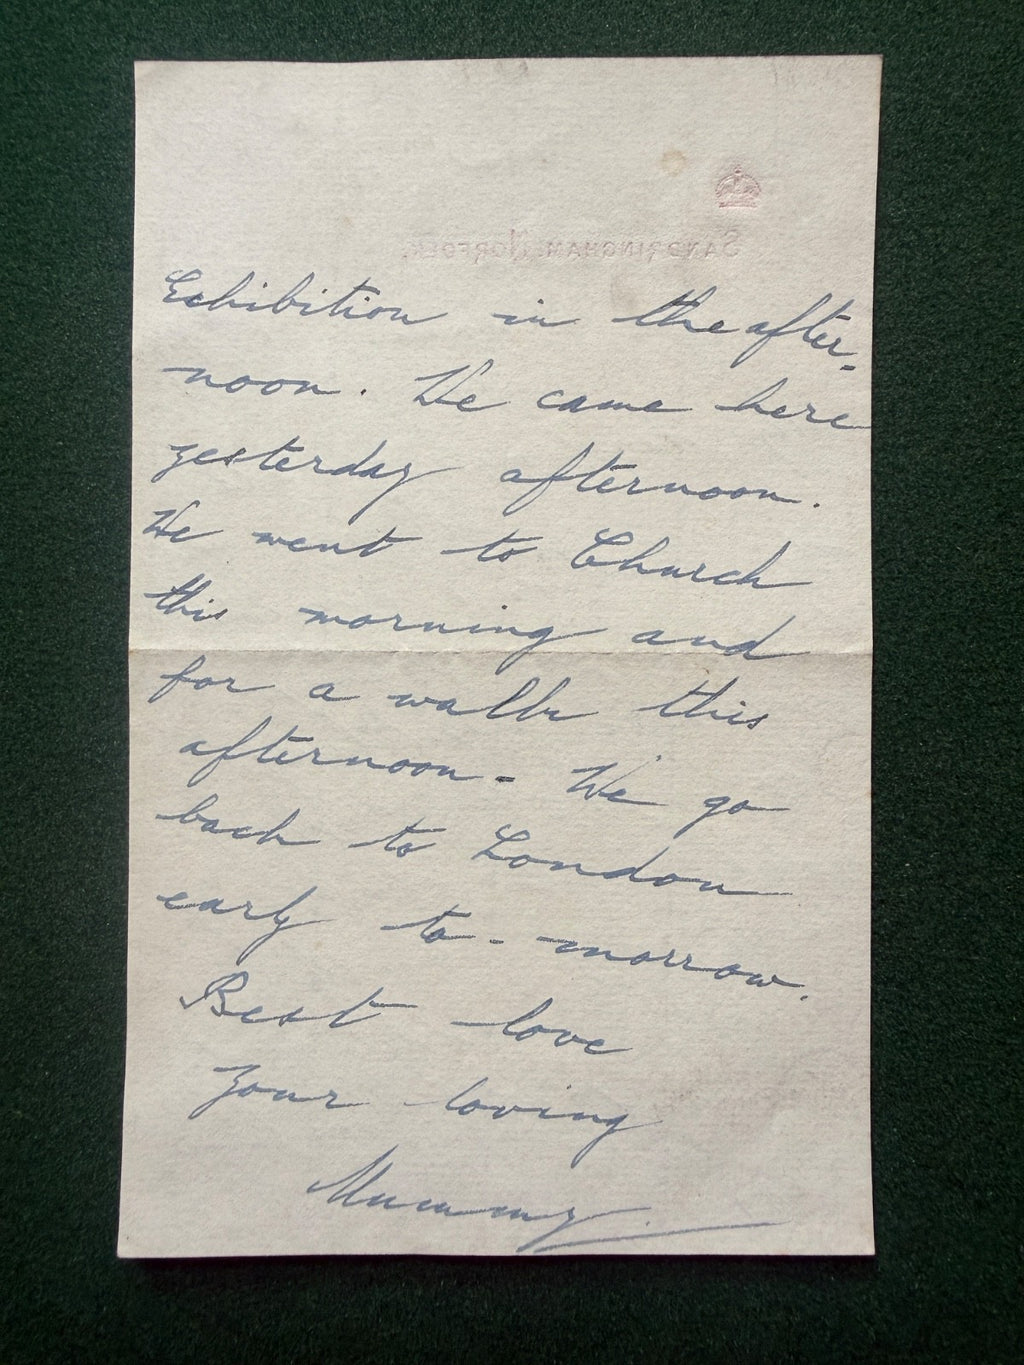 SANDRINGHAM, NORFOLK.
Exhibition in the after-
noon. We came here
yesterday afternoon.
We went to Church
this morning and
for a walk this
afternoon - We go
back to London
early to-morrow.
Best love
your loving
Mummy.